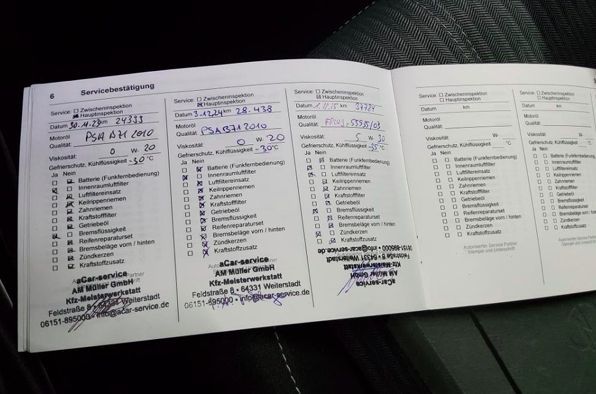 6 Servicebestätigung
Service: Zwischeninspektion
Hauptinspektion
Datum 30.11.23 km 24333
Motoröl
Qualität PSA B71 2010
Viskosität: 0 W- 20
Gefrierschutz, Kühlflüssigkeit -30 °C
Ja Nein
Batterie (Funkfernbedienung)
Innenraumluftfilter
Luftfiltereinsatz
Keilrippenriemen
Zahnriemen
Kraftstofffilter
Getriebeöl
Bremsflüssigkeit
Reifenreparaturset
Bremsbeläge vorn / hinten
Zündkerzen
Kraftstoffzusatz
aCar-service
AM Müller GmbH
Kfz-Meisterwerkstatt
Feldstraße 8 • 64331 Weiterstadt
06151-895000 • info@acar-service.de
Service: Zwischeninspektion
Hauptinspektion
Datum 3.12.24 km 28.438
Motoröl
Qualität: PSA B71 2010
Viskosität: 0 W- 20
Gefrierschutz, Kühlflüssigkeit -30 °C
Ja Nein
Batterie (Funkfernbedienung)
Innenraumluftfilter
Luftfiltereinsatz
Keilrippenriemen
Zahnriemen
Kraftstofffilter
Getriebeöl
Bremsflüssigkeit
Reifenreparaturset
Bremsbeläge vorn / hinten
Zündkerzen
Kraftstoffzusatz
aCar-service
AM Müller GmbH
Kfz-Meisterwerkstatt
Feldstraße 8 • 64331 Weiterstadt
06151-895000 • info@acar-service.de
Service: Zwischeninspektion
Hauptinspektion
Datum km 37724
Motoröl
Qualität:
Viskosität: 5 W- 30
Gefrierschutz, Kühlflüssigkeit -35 °C
Ja Nein
Batterie (Funkfernbedienung)
Innenraumluftfilter
Luftfiltereinsatz
Keilrippenriemen
Zahnriemen
Kraftstofffilter
Getriebeöl
Bremsflüssigkeit
Reifenreparaturset
Bremsbeläge vorn / hinten
Zündkerzen
Kraftstoffzusatz
aCar-service
AM Müller GmbH
Kfz-Meisterwerkstatt
Feldstraße 8 • 64331 Weiterstadt
06151-895000 • info@acar-service.de
Service: Zwischeninspektion
Hauptinspektion
Datum km
Motoröl
Qualität:
Viskosität: W-
Gefrierschutz, Kühlflüssigkeit °C
Ja Nein
Batterie (Funkfernbedienung)
Innenraumluftfilter
Luftfiltereinsatz
Keilrippenriemen
Zahnriemen
Kraftstofffilter
Getriebeöl
Bremsflüssigkeit
Reifenreparaturset
Bremsbeläge vorn / hinten
Zündkerzen
Kraftstoffzusatz
Autorisierter Service Partner
Stempel und Unterschrift